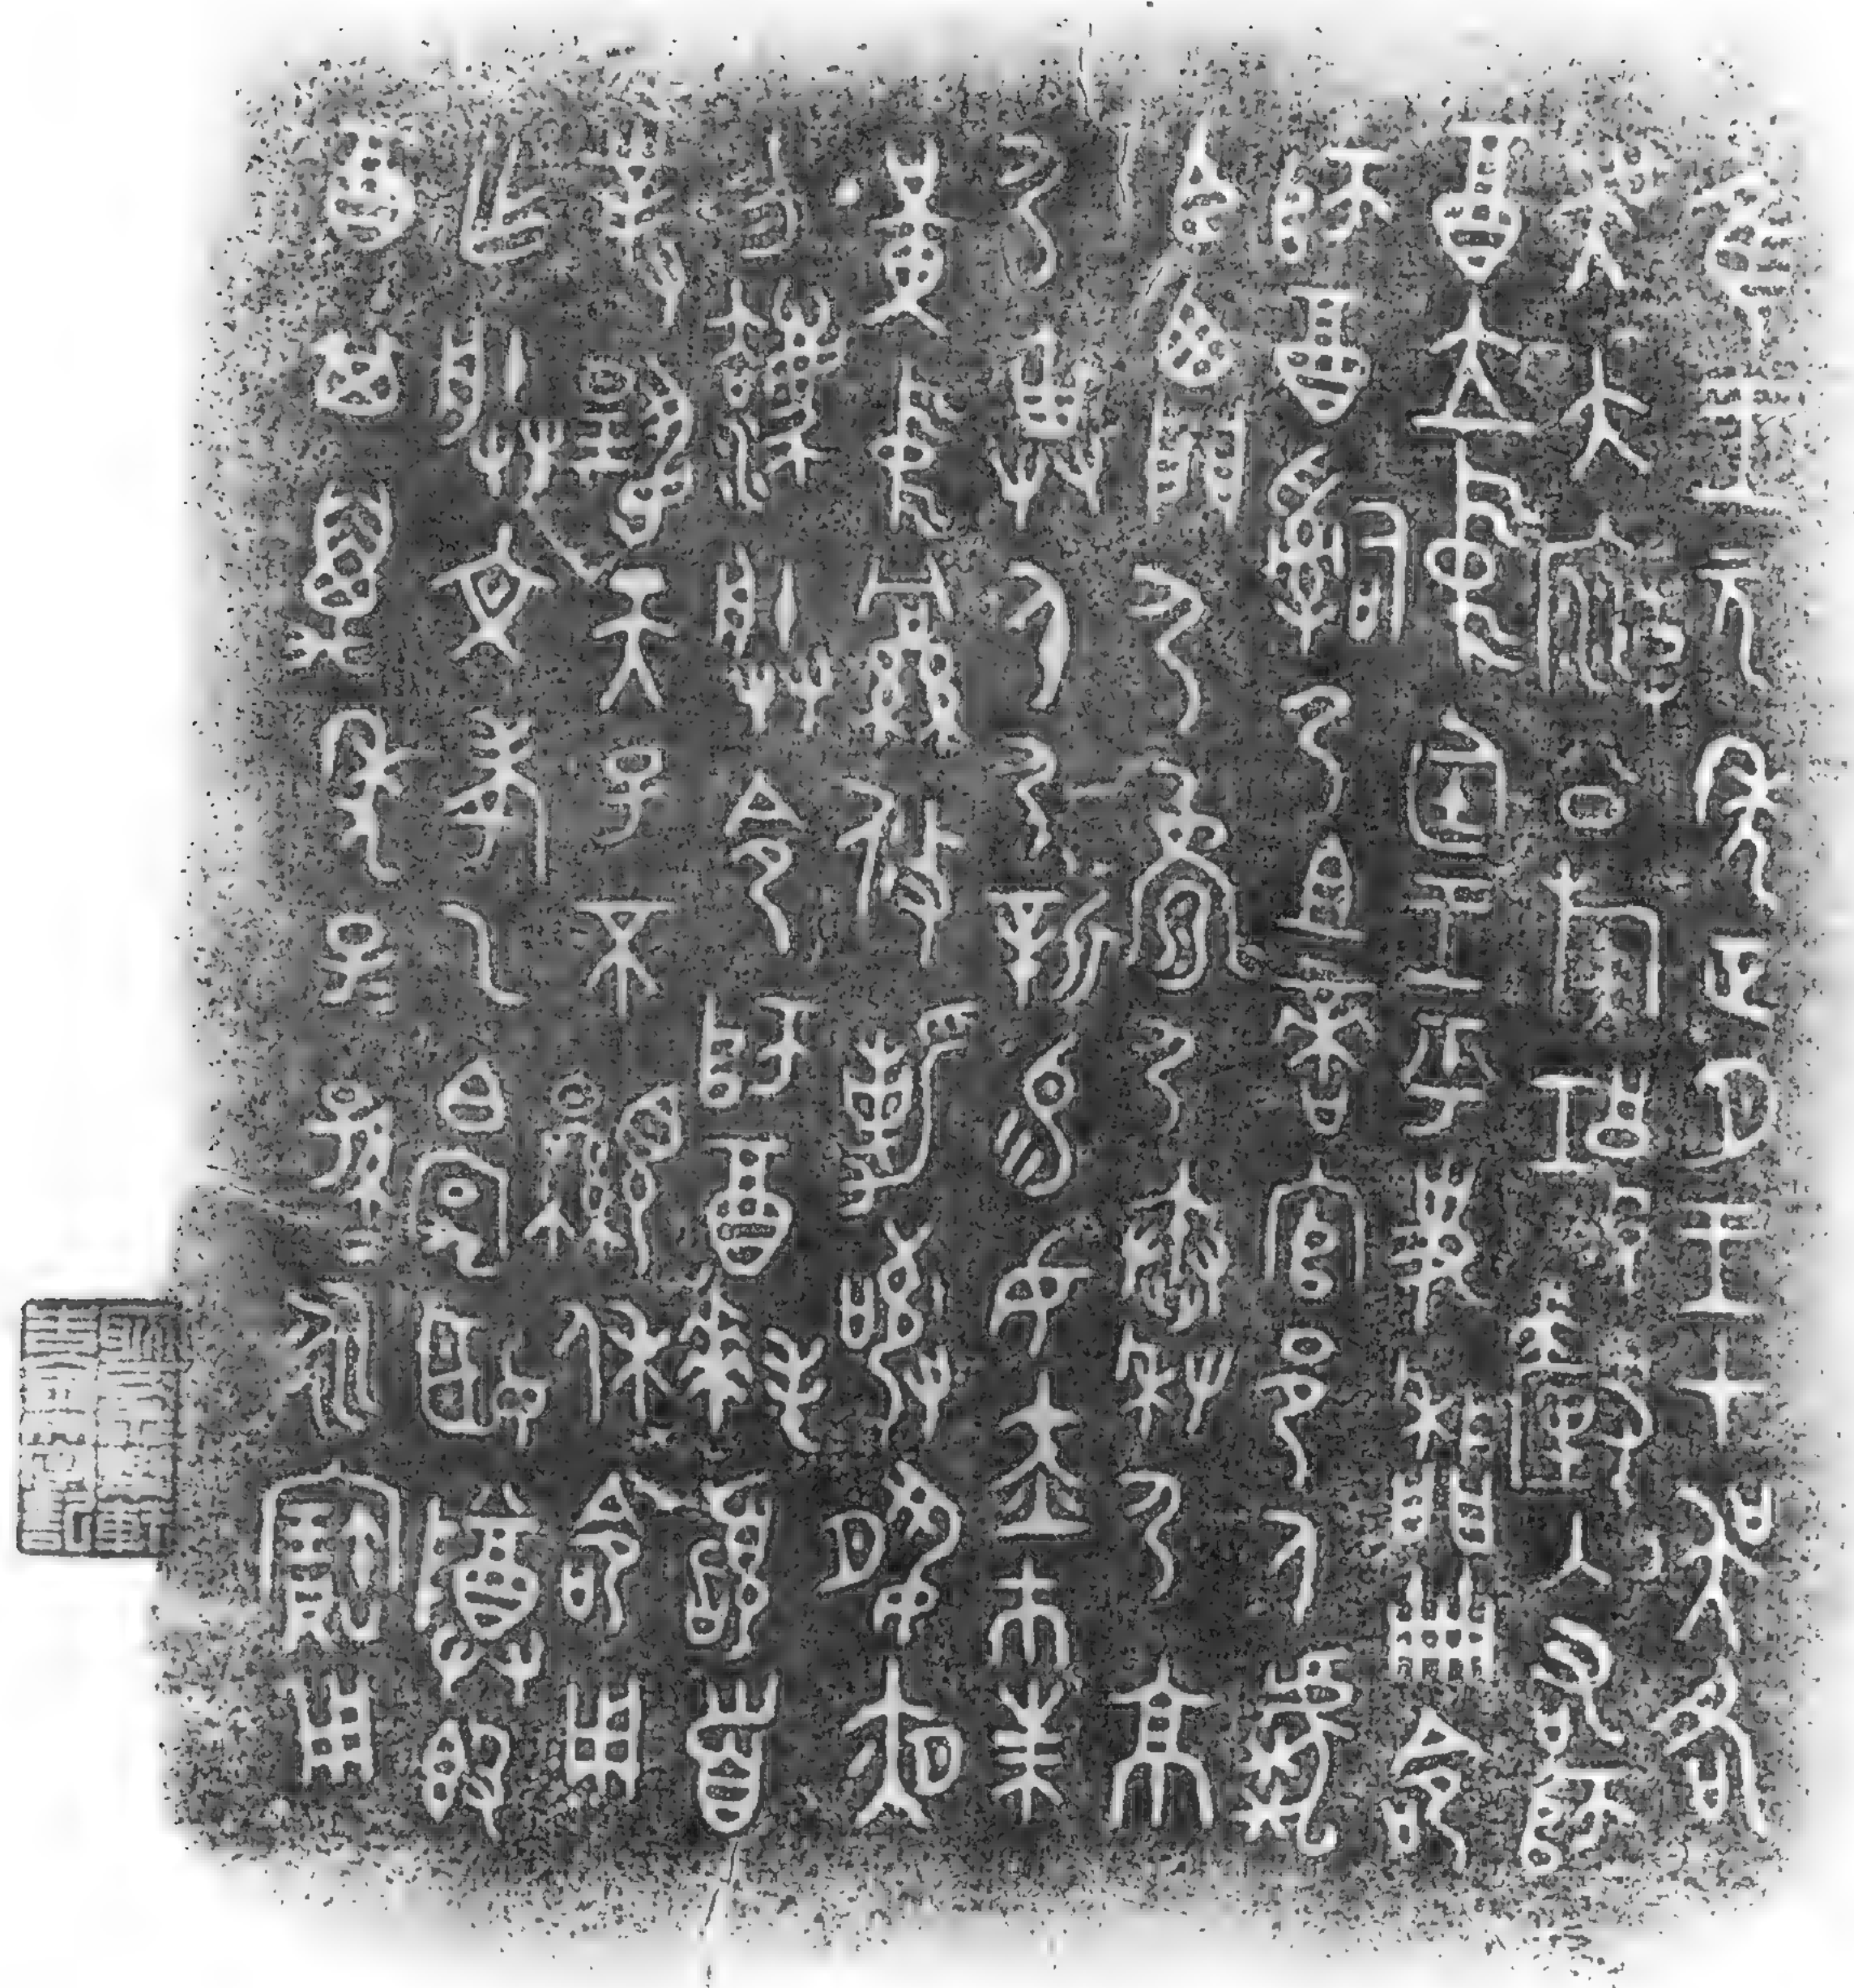 隹王元年正月王才吳各
吳大廟公族釐入右師
酉立中廷王乎史牆冊命
師酉𤔲乃且啻官邑人虎
臣西門夷夷秦夷京
夷畁身夷新易女赤巿朱
黃中絅攸勒敬夙夜勿
灋朕令師酉拜𩒨首
對揚天子不顯休命用
乍朕文考乙白宄姬尊𣪘
酉其萬年子子孫孫永寶用